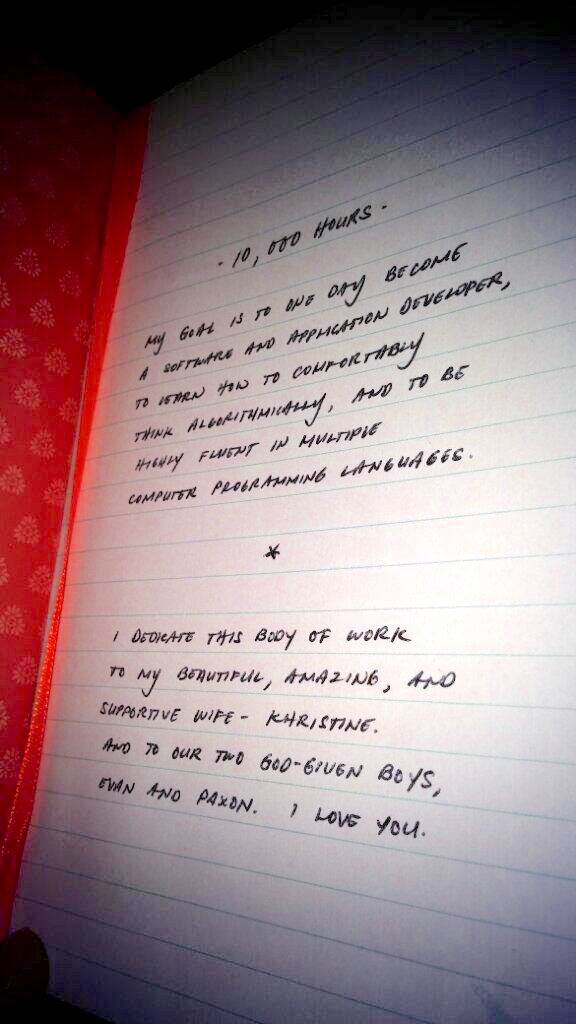 - 10,000 HOURS -
MY GOAL IS TO ONE DAY BECOME
A SOFTWARE AND APPLICATION DEVELOPER,
TO LEARN HOW TO COMFORTABLY
THINK ALGORITHMICALLY, AND TO BE
HIGHLY FLUENT IN MULTIPLE
COMPUTER PROGRAMMING LANGUAGES.
*
I DEDICATE THIS BODY OF WORK
TO MY BEAUTIFUL, AMAZING, AND
SUPPORTIVE WIFE - KHRISTINE.
AND TO OUR TWO GOD-GIVEN BOYS,
EVAN AND PAXON. I LOVE YOU.